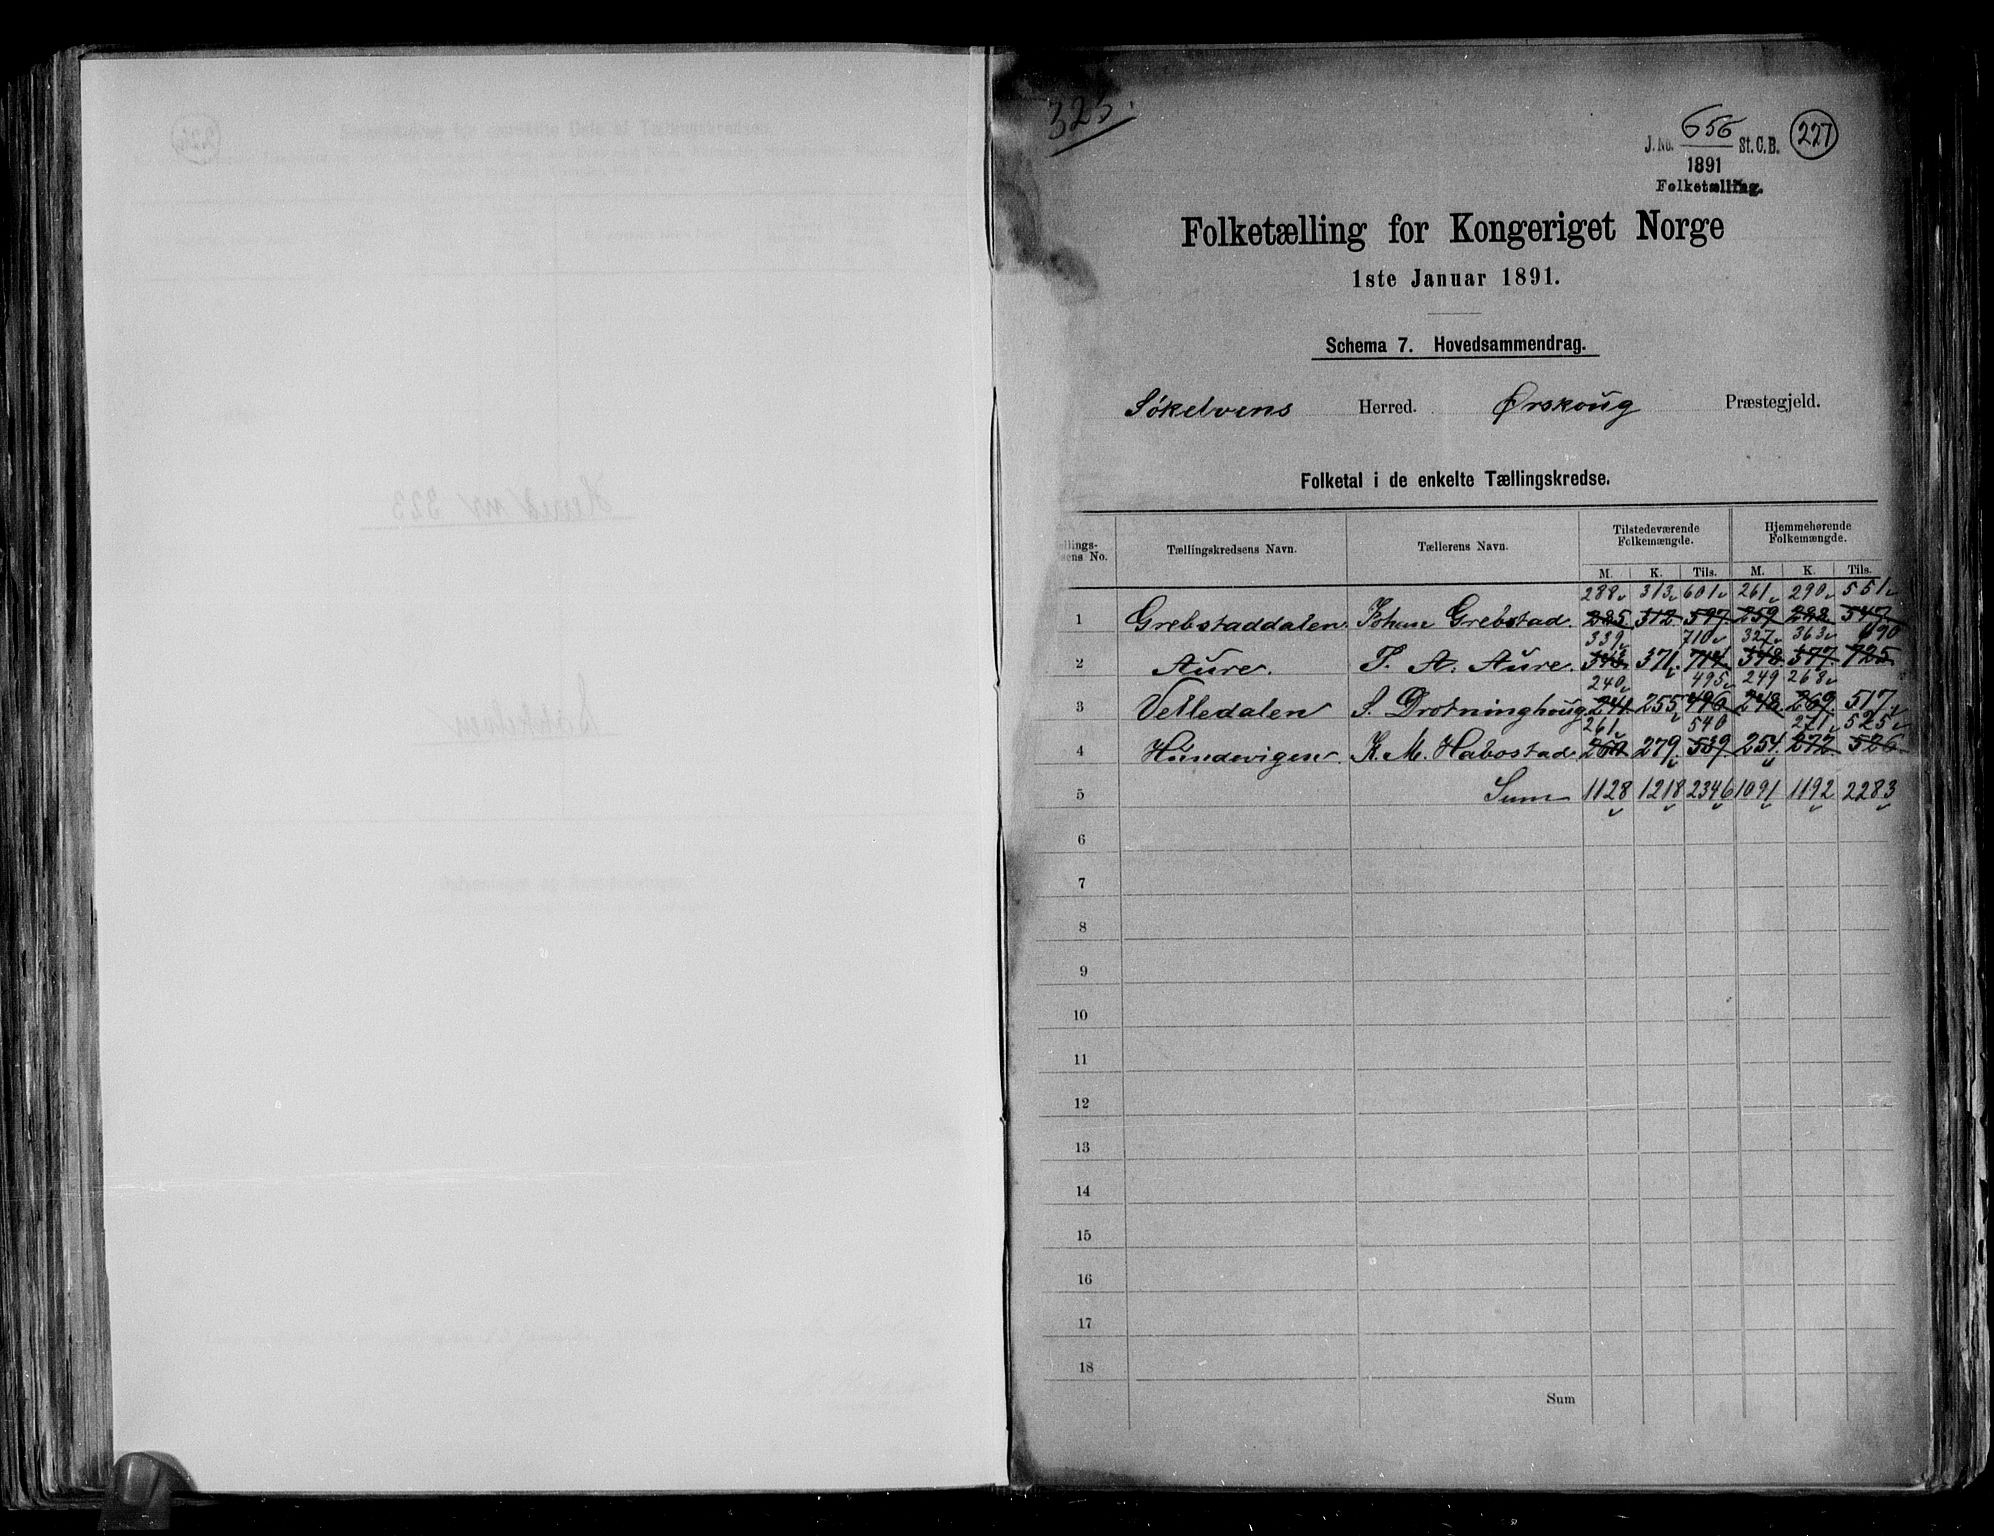 323.
656
J. No. St. C. B. 227
1891
Folketælling.
Folketælling for Kongeriget Norge
1ste Januar 1891.
Schema 7. Hovedsammendrag.
Søkelvens Herred. Ørskoug Præstegjeld.
Folketal i de enkelte Tællingskredse.
Tællingskredsens Navn. Tællerens Navn. Tilstedeværende Folkemængde. Hjemmehørende Folkemængde.
M. K. Tils. M. K. Tils.
288 313 601 261 290 551
1 Grebstaddalen Johan Grebstad. 285 312 597 259 288 547
339 710 327 363 690
2 Aure. P. A. Aure. 343 371 714 348 377 725
240 495 249 268
3 Velledalen S. Drotninghoug 241 255 496 248 269 517
261 540 271 525
4 Hundevigen K. M. Habostad 260 279 539 254 272 526
5 Sum 1128 1218 2346 1091 1192 2283
6
7
8
9
10
11
12
13
14
15
16
17
18
Sum